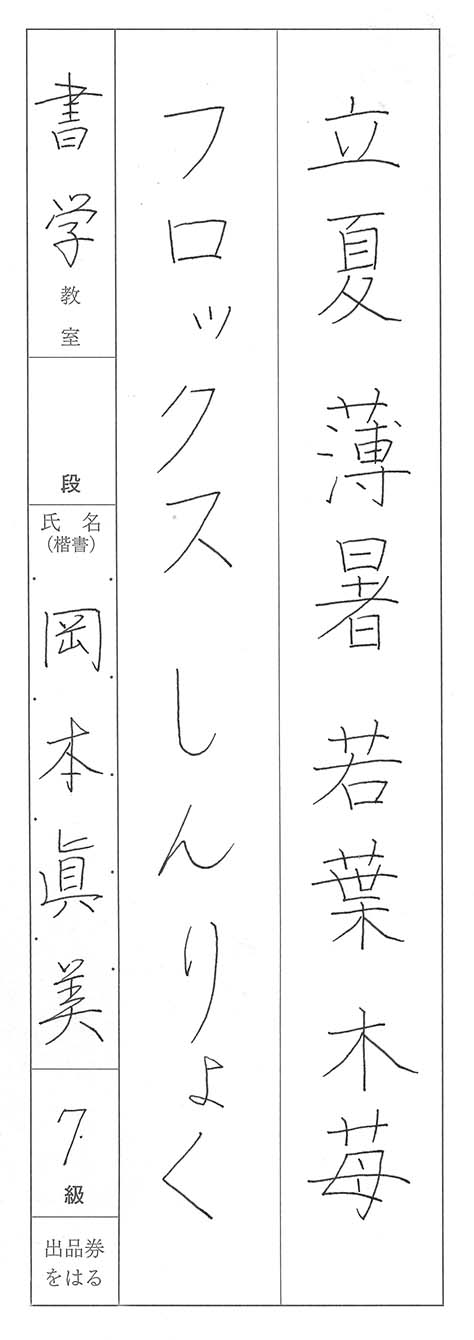 立夏 薄暑 若葉 木苺
フロックス しんりょく
書学教室
段
氏名
(楷書)
岡本眞美
7級
出品券
をはる